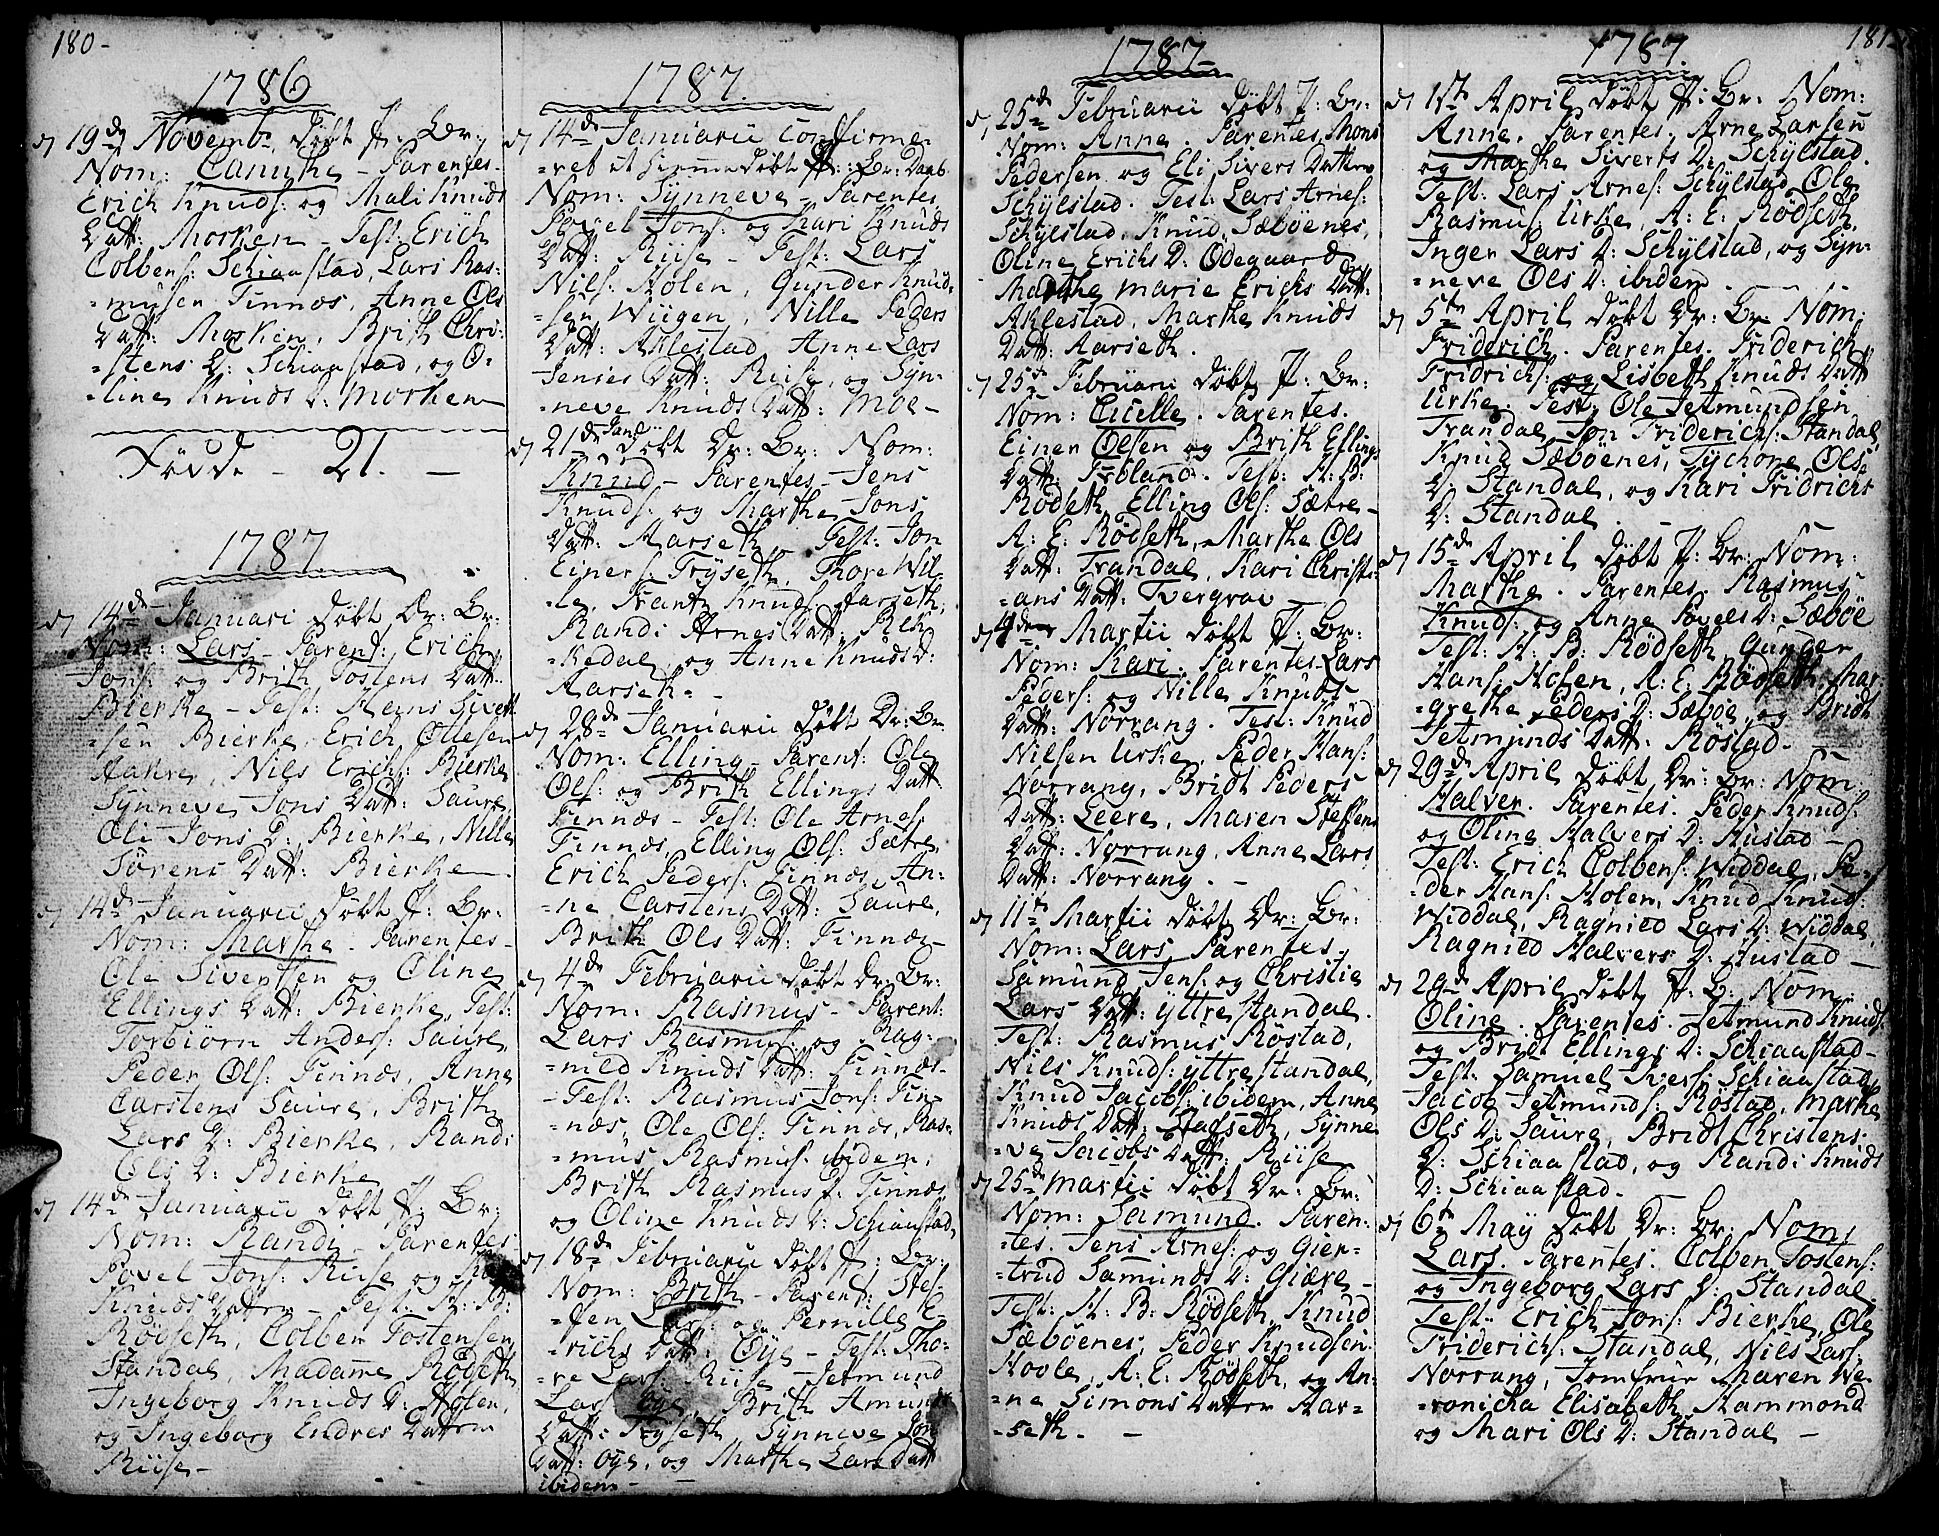 180-
1786
19de Novemb: döbt P: Br:
Nom: Canuthe - Parentes-
Erich Knuds: og Mali Knuds
Datt: Morken - Test: Erich
Colbens: Schiaastad, Lars Ras:
=musen Finnæs, Anne Ols
Datt: Morken, Brith Chri:
=stens D: Schiaastad, og O-
=line Knuds D: Morken -
Födde - 21. -
1787
14de Januari döbt Dr: Br:
Nom: Lars - Parent: Erich
Jons: og Brith Tostens Datt:
Bierke - Test: Hans Sivert
=sen Bierke, Erich Ollesen
Aakre, Nils Erichs: Bierke
Synneve Jons Datt: Saure,
Oli Jons D: Bierke, Nille
Sörens Datt: Bierke -
14de Januarii döbt P: Br:
Nom: Marthe - Parentes-
Ole Sivertsen og Oline
Ellings Datt: Bierke, Test:
Torbiörn Anders: Saure,
Peder Ols: Finnæs, Anne
Carstens Saure, Brith
Lars D: Bierke, Randi
Ols D: Bierke
14de Januarii döbt P: Br:
Nom: Randi - Parentes-
Povel Jons: Riise og
Knuds Datter - Test: H: B:
Rödseth, Colben Tostensen
Standal, Madame Rödseth
Ingeborg Knuds D: Holen,
og Ingeborg Endres Datter
Riise -
1787.
14de Januarii Confirme-
=ret et hiemmedöbt P: Br: Daab
Nom: Synneve - Parentes
Povel Jons: og Kari Knuds
Datt: Riise - Test: Lars
Nils: Holen, Gunder Knud-
=sen Wiigen, Nille Peders
Datt: Aklestad, Anne Lars
Jenses Datt: Riise, og Syn-
=neve Knuds Datt: Moe -
21de Janu: döbt Dr: Br: Nom:
Knud - Parentes - Jens
Knuds: og Marthe Jons
Datt: Aarseth - Test: Jon
Einers: Tryseth, Thore Wil-
=le, Frantz Knuds: Aarseth,
Randi Arnes Datt: Blek
=kedal, og Anne Knuds D:
Aarseth. -
28de Januarii döbt Dr: Br:
Nom: Elling - Parent: Ole
Ols: og Brith Ellings Datt
Finnæs - Test: Ole Arnes:
Finnæs, Elling Ols: Sætre,
Erich Peders: Finnæs, An-
=ne Carstens Datt: Saure,
Brith Ols Datt: Finnæs -
4de Februarii döbt Dr: Br:
Nom: Rasmus - Parent:
Lars Rasmus: og Rag-
=nild Knuds Datt: Finnæs-
- Test: Rasmus Jons: Fin-
=næs, Ole Ols: Finnæs, Ras-
=mus Rasmus: ibidem,
Brith Rasmus D: Finnæs
og Oline Knuds D: Schiaastad,
18de Februarii döbt P: Br:
Nom: Brith - Parent: Stef
=fen Lars: og Pernille E-
=richs Datt: Öye - Test: Tho-
=re Lars: Riise - Jetmund
Lars: Öye, Brith Amunds
Datt: Tryseth, Synneve Jons
Datt: Öye, og Marthe Lars Datt
ibidem -
1787-
25de Februarii döbt P: Br:
Nom: Anne. Parentes Mons
Pedersen og Eli Sivers Datter
Schylstad. Test: Lars Arnes:
Schylstad, Knud Sæböenes,
Oline Erichs D: Ödegaard,
Marthe Marie Erichs Datt:
Aklestad, Marthe Knuds
Datt: Aarseth.
25de Februarii döbt P: Br:
Nom: Cicelle. Parentes.
Einer Olsen og Brith Ellings
Datt: Tröland. Test: H: B:
Rödseth, Elling Ols: Sætre-
A: E: Rödseth, Marthe Ols
Datt: Trandal, Kari Christi:
=ans Datt: Tvergrov -
4de Martii döbt P: Br:
Nom: Kari. Parentes Lars
Peders: og Nille Knuds
Datt: Norrang. Test: Knud
Nilsen Urke, Peder Hans:
Norrang, Bridt Peders
Datt: Leere, Maren Steffens
Datt: Norrang, Anne Lars
Datt: Norrang. -
11te Martii döbt Dr: Br:
Nom: Lars Parentes,
Samund Jens: og Christie
Lars Datt: Yttre Standal.
Test: Rasmus Röstad,
Nils Knuds: yttre standal,
Knud Jacobs: ibidem, Anne
Knuds Datt: Stafseth, Synne
=ve Jacobs Datt: Riise
25de Martii döbt Dr: Br:
Nom: Samund. Paren-
=tes. Jens Arnes: og Gier-
=trud Samunds D: Giære -
Test: H: B: Rödseth, Knud
Sæböenes, Peder Knudsen
Hovle, A: E: Rödseth, og An-
=ne Simons Datter Aar=
=seth. -
1787.
181
1ste April döbt P: Br: Nom:
Anne. Parentes. Arne Larsen
og Marthe Siverts D: Schylstad.
Test: Lars Arnes: Schylstad, Ole
Rasmus: Urke, A: E: Rödseth,
Inger Lars D: Schylstad, og Syn-
=neve Ols D: ibidem.
5te April döbt Dr: Br: Nom:
Friderich. Parentes. Friderich
Fridrichs: og Lisbeth Knuds Datt
Urke. Test: Ole Jetmundsen
Trandal, Jon Friderichs: Standal,
Knud Sæböenes, Tychone Ols
D: Standal, og Kari Fridrichs
D: Standal. -
15de April döbt P: Br: Nom:
Marthe. Parentes. Rasmus
Knuds: og Anne Povels D: Sæböe
Test: H: B: Rödseth, Gunder
Hans: Holen, A: E: Rödseth, Mar-
=grethe Peders D: Sæböe, og Bridt
Jetmunds Datt: Rostad.
29de April döbt Dr: Br: Nom:
Halver. Parentes. Peder Knuds:
og Oline Halvers D: Hustad -
Test: Erich Colbens: Widdal, Pe-
=der Hans: Holen, Knud Knuds:
Widdal, Ragnild Lars D: Widdal,
Ragnild Halvers D: Hustad -
29de April döbt P: B: Nom:
Oline. Parentes. Jetmund Knuds:
og Bridt Ellings D: Schiaastad-
Test: Samuel Ivers: Schiaastad,
Jacob Jetmunds: Rostad, Marthe
Ols D: Saure, Bridt Christens
D: Schiaastad, og Randi Knuds
D: Schiaastad.
6te May döbt Dr: Br: Nom:
Lars. Parentes. Colben Tostens:
og Ingeborg Lars D: Standal.
Test: Erich Jons: Bierke, Ole
Friderichs: Standal, Nils Lars:
Norrang, Jomfrue Maren We-
=ronicha Elisabeth Hammond
og Mari Ols D: Standal -